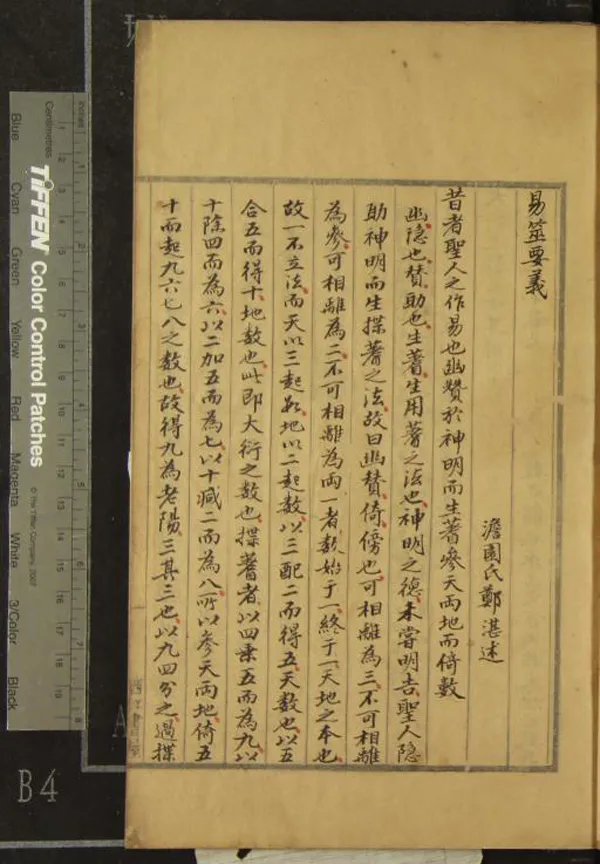 易筮要義
澹園氏鄭湛述
昔者聖人之作易也幽贊於神明而生蓍參天兩地而倚數
幽隱也贊助也生蓍生用蓍之法也神明之德未嘗明告聖人隱
助神明而生揲蓍之法故曰幽贊倚傍也可相離為三不可相離
為參可相離為二不可相離為兩一者數始于一終于一天地之本也
故一不立法而天以三起數地以二起數以三配二而得五天數也以五
合五而得十地數也此即大衍之數也揲蓍者以四乘五而為九以
十除四而為六以二加五而為七以十減二而為八所以參天兩地倚五
十而起九六七八之數也故得九為老陽三其三也以九四分之過揲
Centimetres
inches
1 2 3 4 5 6 7 8 9 10 11 12 13 14 15 16 17 18 19
1 2 3 4 5 6 7 8
TIFFEN Color Control Patches
© The Tiffen Company, 2007
Blue Cyan Green Yellow Red Magenta White 3/Color Black
B4